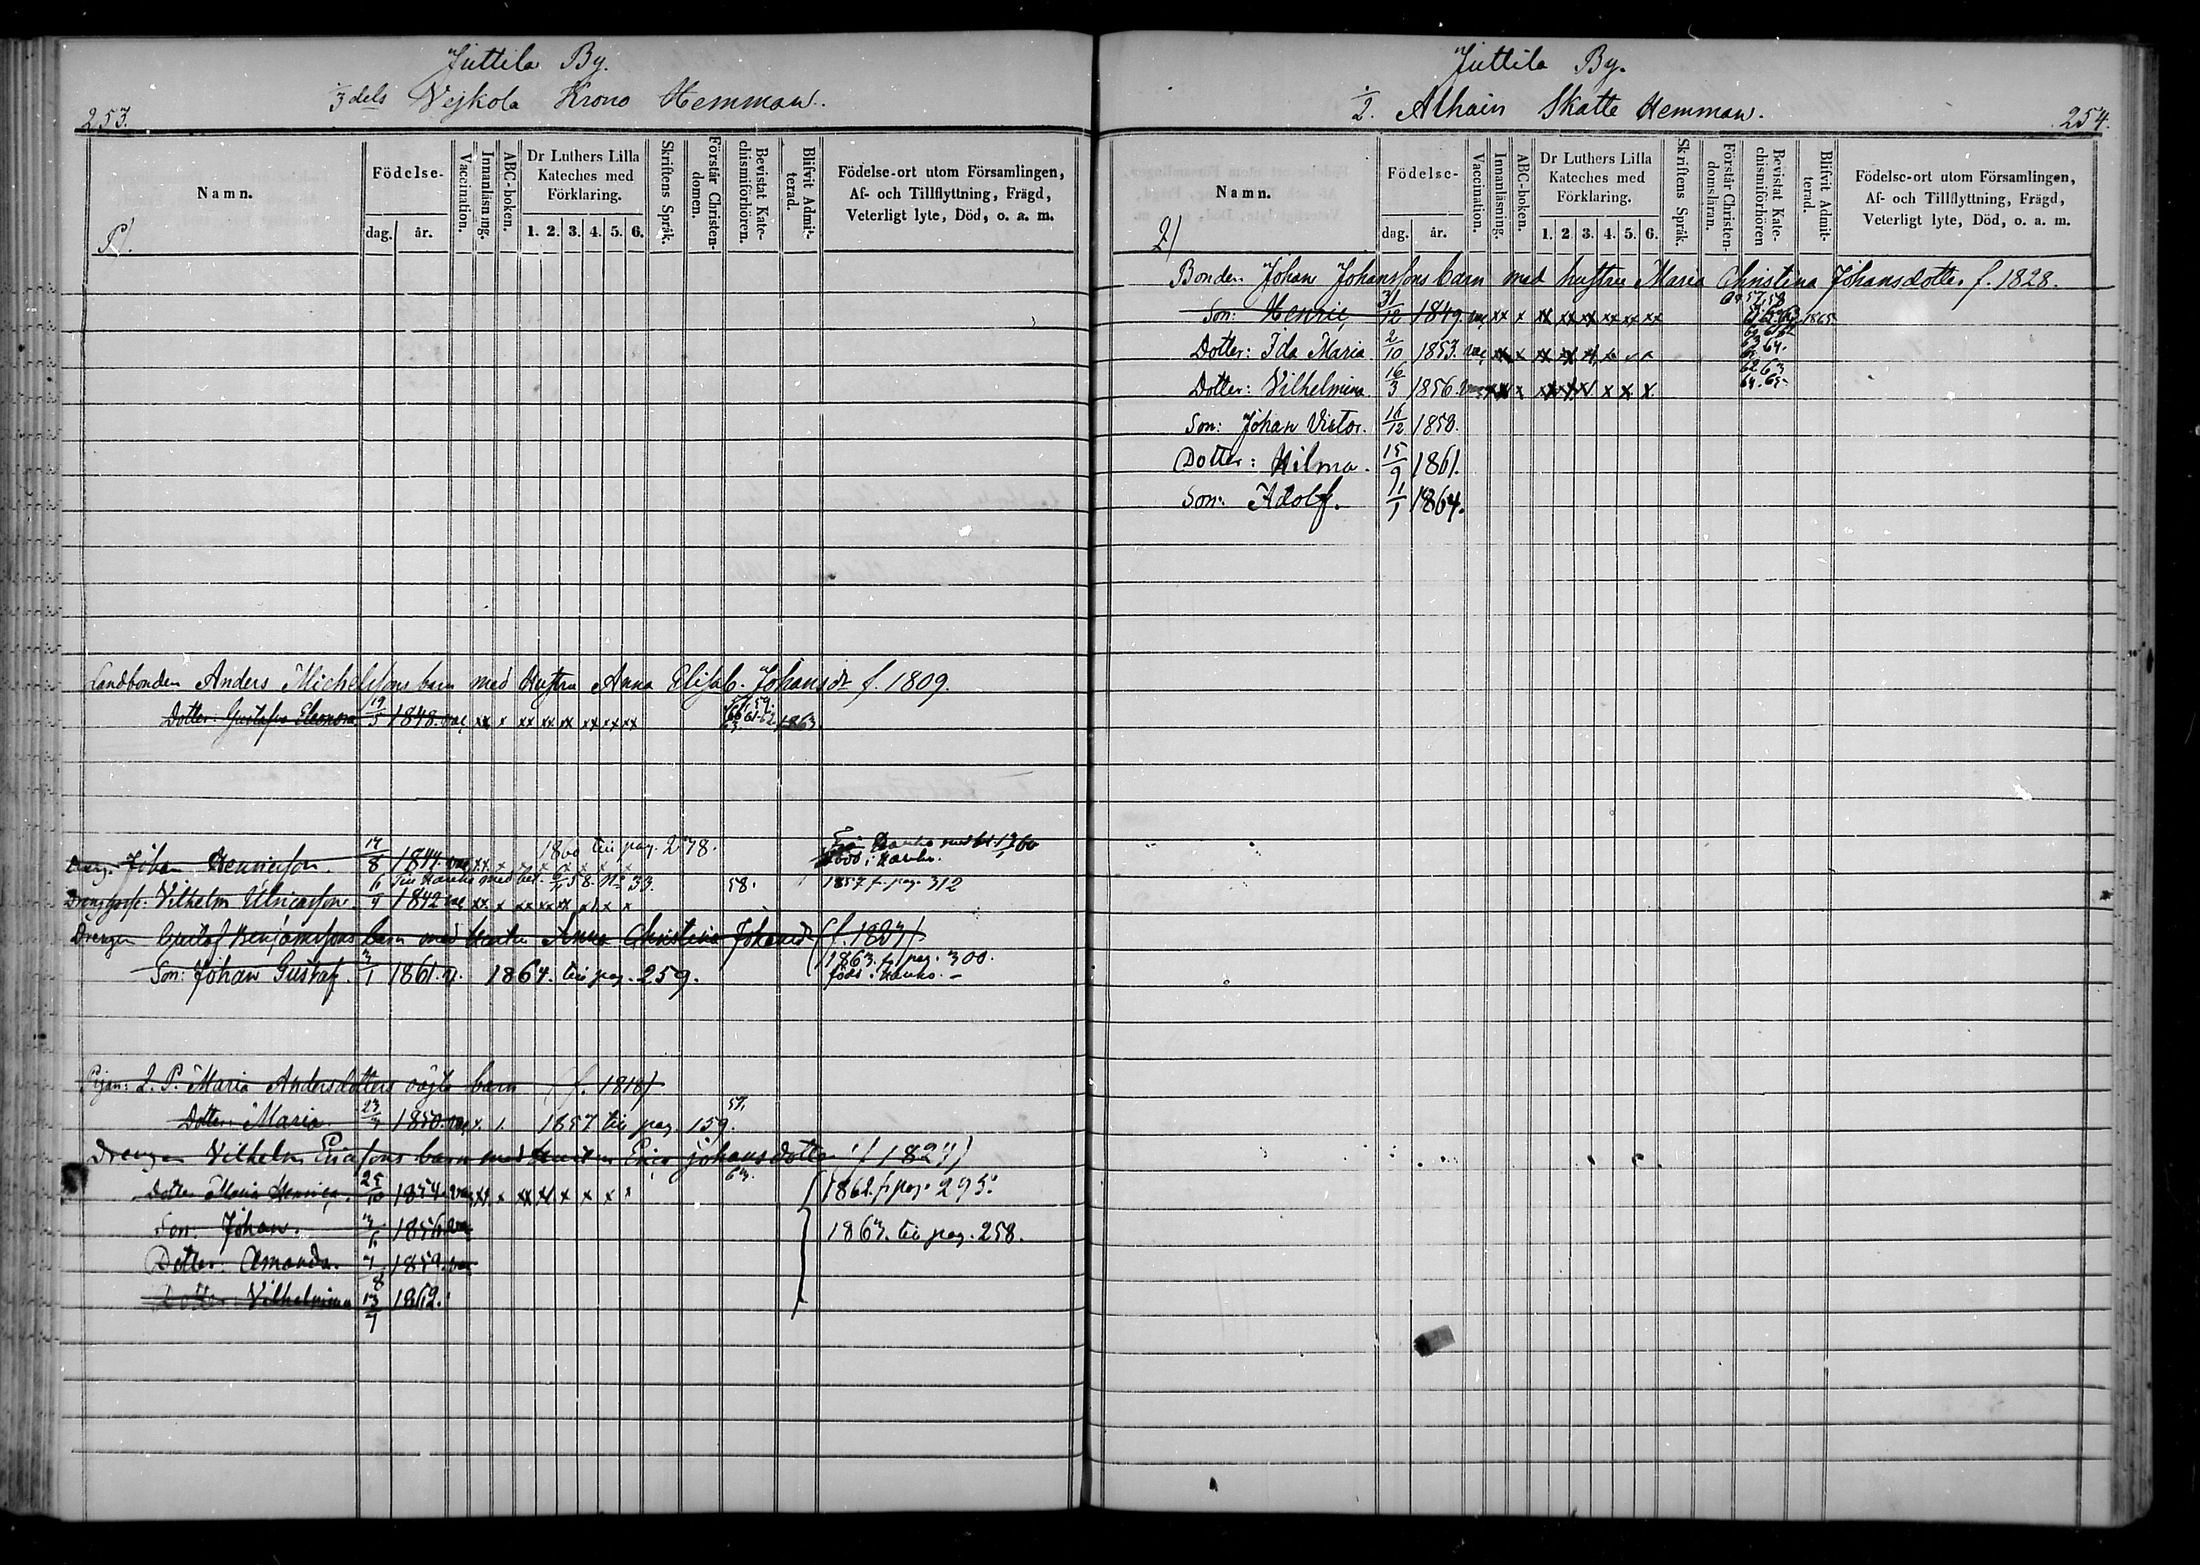 Juttila By.
1/3 dels Vejkola Krono Hemman.
253.
Namn.
Födelse-
dag.
år.
Vaccination.
Innanläsning.
ABC-boken.
Dr Luthers Lilla Kateches med Förklaring.
1. 2. 3. 4. 5. 6.
Skriftens Språk.
Förstår Christendomen.
Bevistat Katechismiförhören.
Blifvit Admitterad.
Födelse-ort utom Församlingen,
Af- och Tillflyttning, Frägd,
Veterligt lyte, Död, o. a. m.
Landbonden Anders Michelssons barn med Hustru Anna Elisab. Johansdr f. 1809.
Dotter: Gustafva Eleonora 19/5 1848. vac xx x xx xx xx xx xx 57. 59. 61. 62 63. 1863.
17/8 1844. vac xx x 1860 till pag. 278.
Dreng. Johan Henricsson.
född i Karuko.
till Karuko med bet. 58. No 33. 58. 1857 f. pag. 312
Drenggoss: Vilhelm Ulricsson 6/4 1842 vac xx x xx xx xx x x
Drengen Gustaf Benjamissons barn med Hustru Anna Christina Johansdr (f. 1827)
1863. fr pag. 300.
Son: Johan Gustaf. 3/1 1861. v. 1864. till pag. 259. född i Karuko. –
Pigan: L. P. Maria Andersdotters oägta barn (f. 1818)
57.
Dotter: Maria. 23/3 1850. vac x. 1. 1857 till pag. 159.
Drengen Vilhelm Ericssons barn med hustru Erica Johansdotter (f 1827)
63.
Dotter Maria Henrica. 25/10 1854. vac xx x xx xx x x x x 1862. fr pag. 295.
Son: Johan. 1856. vac 1863. till pag. 258.
Dotter: Amanda. 7/8 1859. vac
Dotter Vilhelmina 13/7 1862.
Juttila By.
1/2. Alhain Skatte Hemman.
254.
Namn.
Födelse-
dag.
år.
Vaccination.
Innanläsning.
ABC-boken.
Dr Luthers Lilla Kateches med Förklaring.
1. 2. 3. 4. 5. 6.
Skriftens Språk.
Förstår Christendomsläran.
Bevistat Katechismiförhören
Blifvit Admitterad.
Födelse-ort utom Församlingen,
Af- och Tillflyttning, Frägd,
Veterligt lyte, Död, o. a. m.
Bonden Johan Johanssons barn med hustru Maria Christina Johansdotter f. 1828.
Son: Henric, 31/12 1849. vac xx x xx xx xx xx xx xx 57. 58 1865.
Dotter: Ida Maria 2/10 1853. vac xx x xx xx 63 64.
Dotter: Vilhelmina 16/3 1856. vac xx x xx xx xx x x x. 62 63 64. 65
Son: Johan Victor. 16/12 1850.
Dotter: Hilma. 15/9 1861.
Son: Adolf. 11/1 1864.